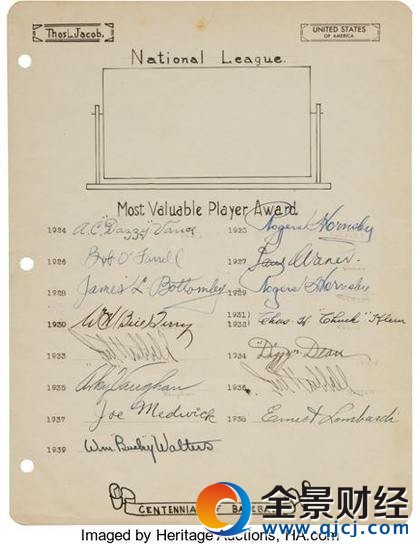 Thos.L.Jacob.
UNITED STATES
OF AMERICA
National League.
Most Valuable Player Award
1924 A.C. "Dazzy" Vance 1925 Rogers Hornsby
1926 Bob O'Farrell 1927 Paul Waner.
1928 James L Bottomley 1929 Rogers Hornsby
1930 Wm H (Bill) Terry 1931) 1932) Chas. H. "Chuck" Klein
1933 Carl Hubbell 1934 "Dizzy" Dean
1935 Arky Vaughan 1936 Carl Hubbell
1937 Joe Medwick 1938 Ernest Lombardi
1939 Wm Bucky Walters
CENTENNIAL OF BASEBALL
全景财经
www.qjcj.com
Imaged by Heritage Auctions, HA.com